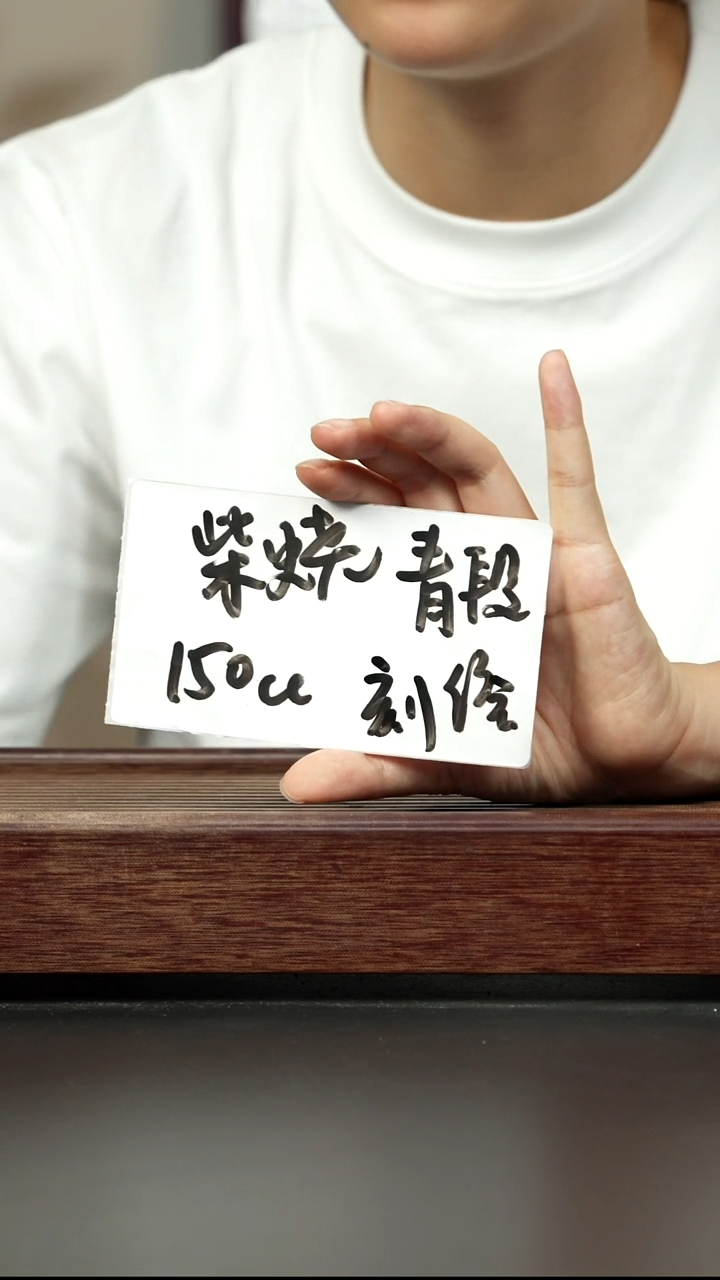 柴烧 青段
150cc 刻绘